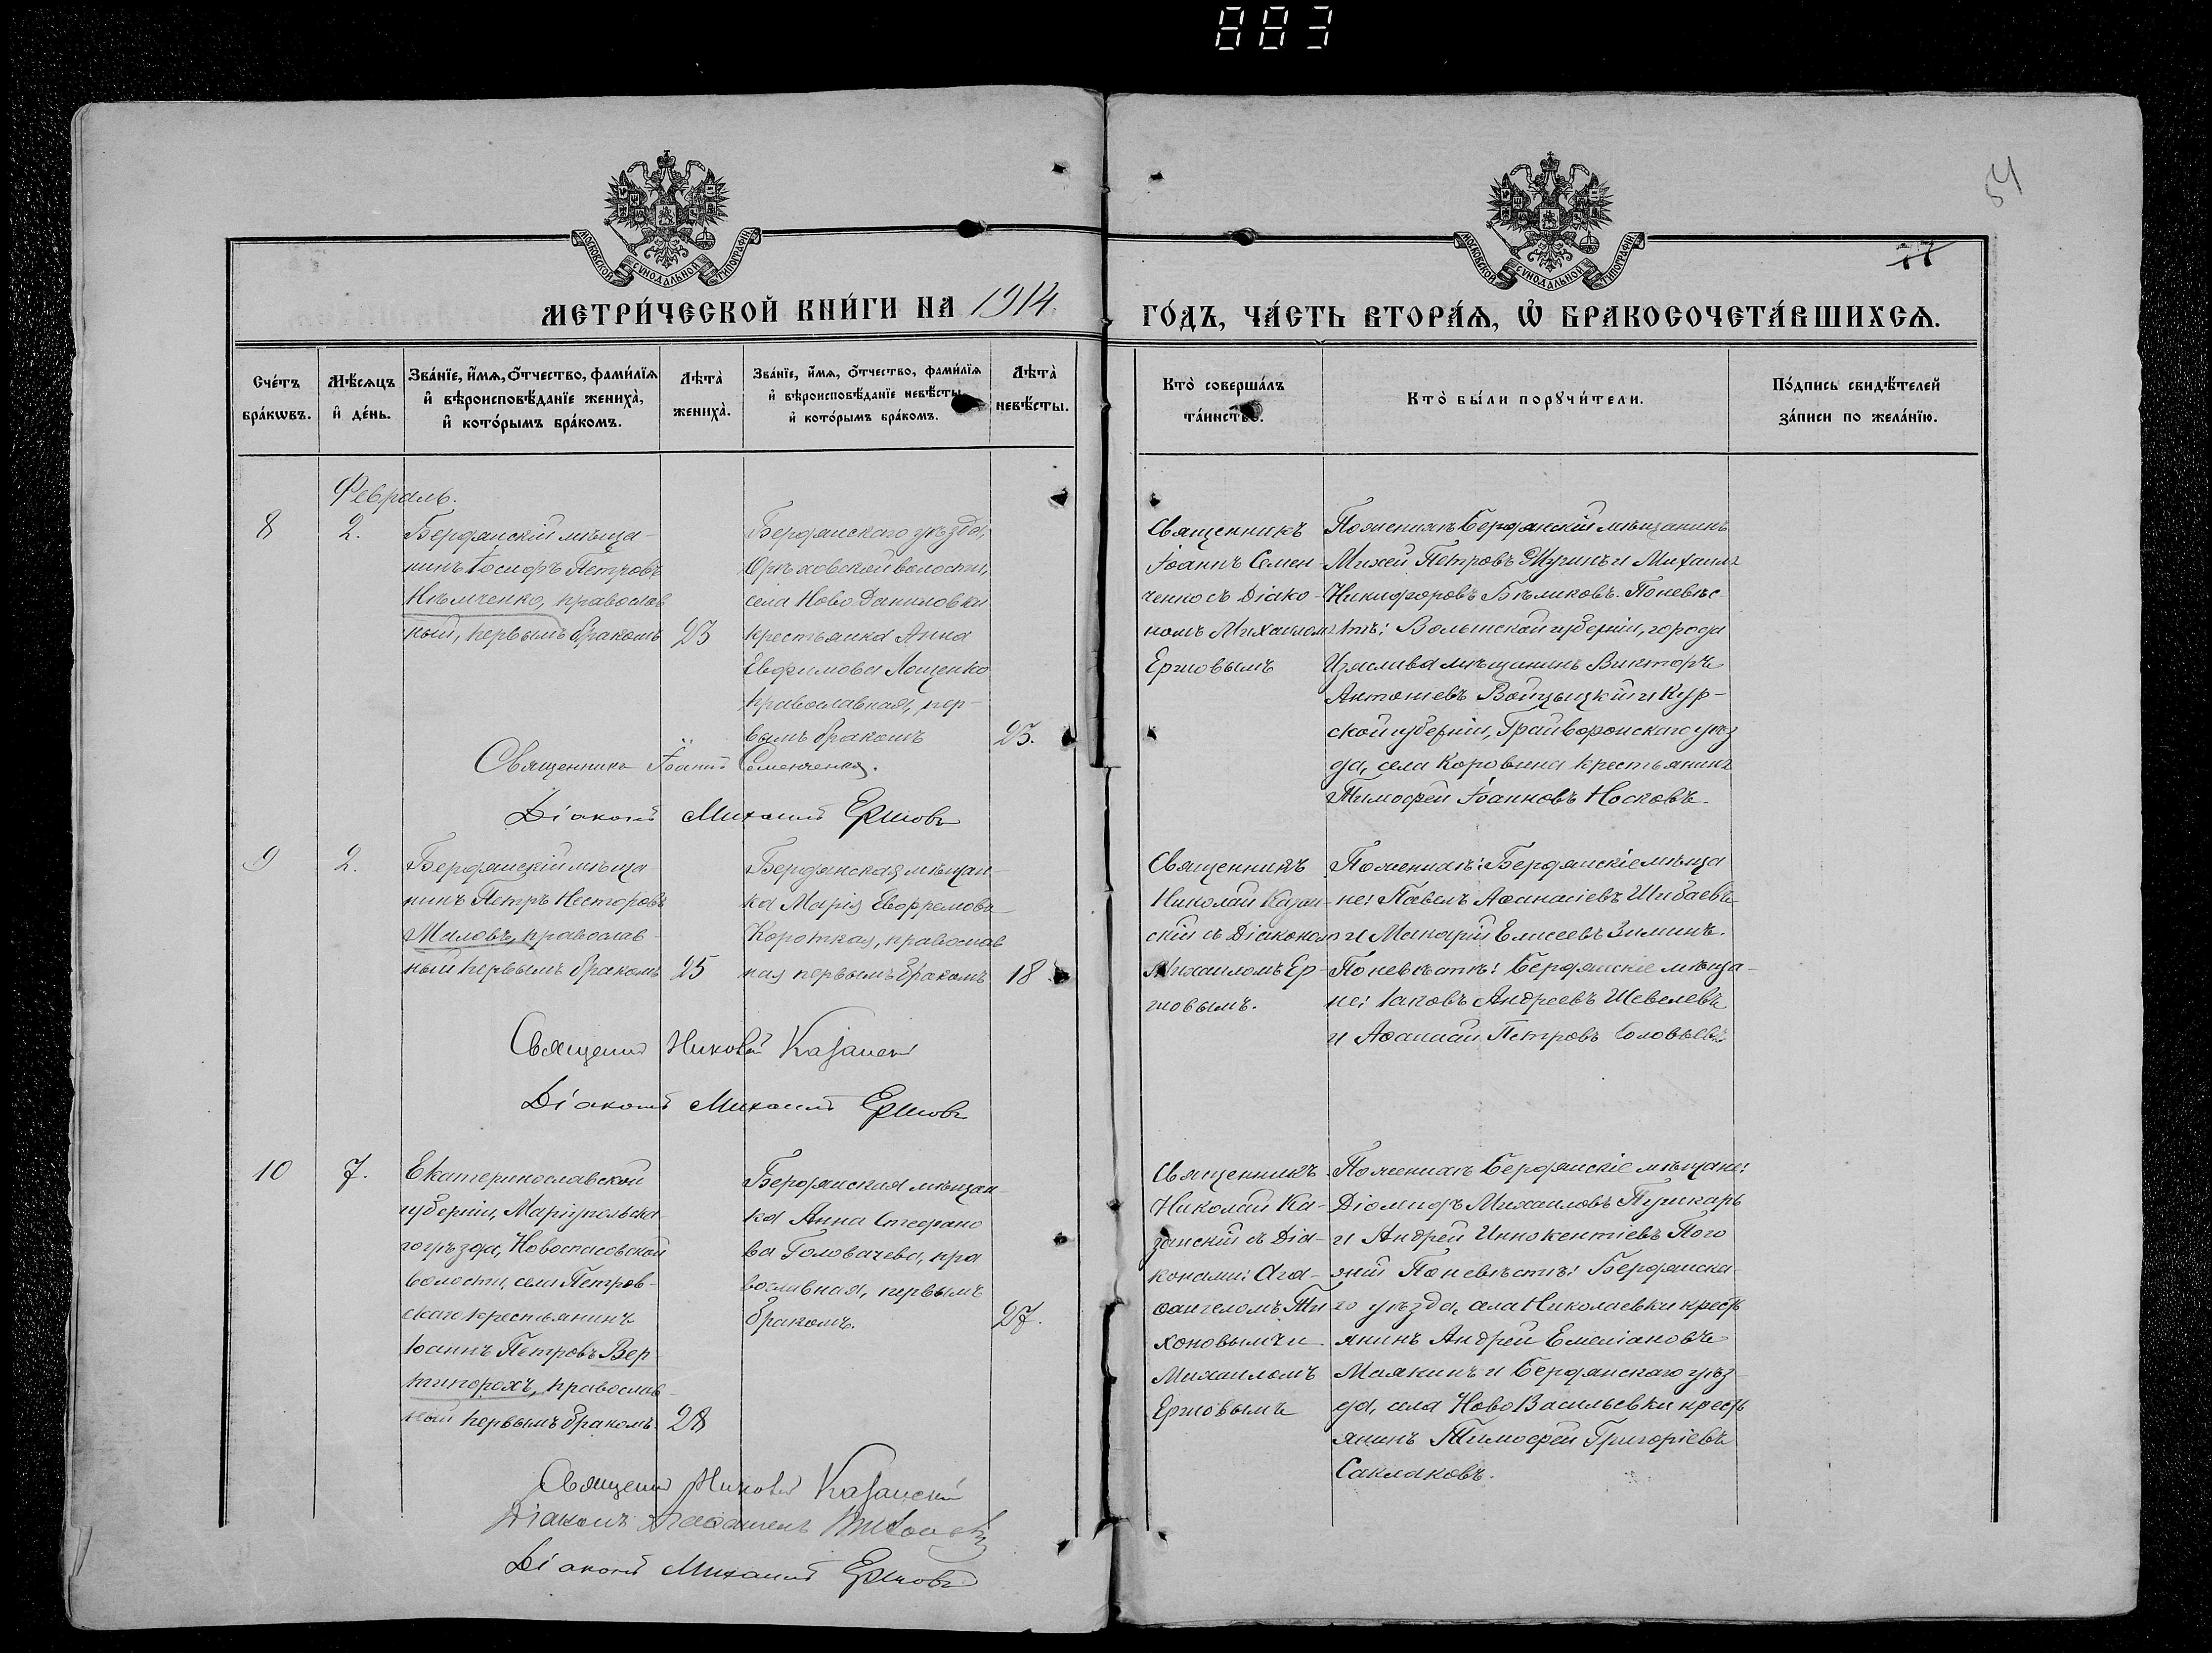 883
54
МОСКОВСКОЙ СѴНОДАЛЬНОЙ ТИПОГРАФІИ
МОСКОВСКОЙ СѴНОДАЛЬНОЙ ТИПОГРАФІИ
МЕТРИ́ЧЕСКОЙ КНИ́ГИ НА 1914
ГО́ДЪ, ЧА́СТЬ ВТОРА́Ѧ, Ѡ҆ БРАКОСОЧЕТА́ВШИХСѦ.
Сче́тъ
бра́кѡвъ.
Мѣ́сѧцъ
и҆ де́нь.
Зва́нїе, и҆́мѧ, ѻ҆́тчество, фами́лїѧ
и҆ вѣроисповѣ́данїе жениха̀,
и҆ кото́рымъ бра́комъ.
Лѣта̀
жениха̀.
Зва́нїе, и҆́мѧ, ѻ҆́тчество, фами́лїѧ
и҆ вѣроисповѣ́данїе невѣ́сты,
и҆ кото́рымъ бра́комъ.
Лѣта̀
невѣ́сты.
Кто̀ соверша́лъ
та́инство.
Кто̀ бы́ли порꙋчи́тели.
По́дпись свидѣ́телей
за́писи по жела́нїю.
Февраль.
8
2.
Бердянскій мѣща-
нинъ Іосифъ Петровъ
Нѣмченко, православ
ный, первымъ бракомъ
23
Бердянскаго уѣзда,
Орѣховской волости,
села Ново-Даниловки
крестьянка Анна
Евфимова Лощенко
православная, пер-
вымъ бракомъ
23.
Священникъ
Іоаннъ Семен-
ченко съ Діако-
номъ Михаиломъ
Ершовымъ
По женихѣ Бердянскій мѣщанинъ
Михей Петровъ Жугинъ и Михаилъ
Никифоровъ Бѣликовъ. По невѣс
тѣ: Волынской губерніи, города
Изяслава мѣщанинъ Викторъ
Антоніевъ Войцыцкій и Кур-
ской губерніи, Грайворонскаго уѣз
да, села Коровина крестьянинъ
Тимофей Іоанновъ Носковъ.
Священникъ Іоаннъ Семенченко.
Діаконъ Михаилъ Ершовъ
9
2.
Бердянскій мѣща
нинъ Петръ Несторовъ
Маловъ, православ-
ный первымъ бракомъ
25
Бердянская мѣщан-
ка Марія Евфремова
Короткая, православ
ная первымъ бракомъ
18
Священникъ
Николай Казан-
скій съ Діакономъ
Михаиломъ Ер-
шовымъ.
По женихѣ: Бердянскіе мѣща
не: Павелъ Аѳанасіевъ Шибаевъ
и Макарій Елисеевъ Зиминъ.
По невѣстѣ: Бердянскіе мѣща-
не: Іаковъ Андреевъ Шевелевъ
и Аѳанасій Петровъ Соловьевъ
Священникъ Николай Казанскій
Діаконъ Михаилъ Ершовъ
10
7.
Екатеринославской
губерніи, Маріупольска
го уѣзда, Новоспасовской
волости, села Петров-
скаго крестьянинъ
Іоаннъ Петровъ Вер
типорохъ, православ-
ный первымъ бракомъ
28
Бердянская мѣщан-
ка Анна Стефано
ва Головачева, пра
вославная, первымъ
бракомъ.
27.
Священникъ
Николай Ка-
занскій съ Діа-
конами: Ага-
ѳангеломъ Ти
хоновымъ и
Михаиломъ
Ершовымъ
По женихѣ Бердянскіе мѣщане:
Діомидъ Михаиловъ Пушкарь
и Андрей Иннокентіевъ Пого
жій По невѣстѣ: Бердянска-
го уѣзда, села Николаевки кресть
янинъ Андрей Емеліановъ
Малкинъ и Бердянскаго уѣз
да, села Ново Васильевки кресть
янинъ Тимофей Григоріевъ
Саклаковъ.
Священникъ Николай Казанскій
Діаконъ Агаѳангелъ
Діаконъ Михаилъ Ершовъ